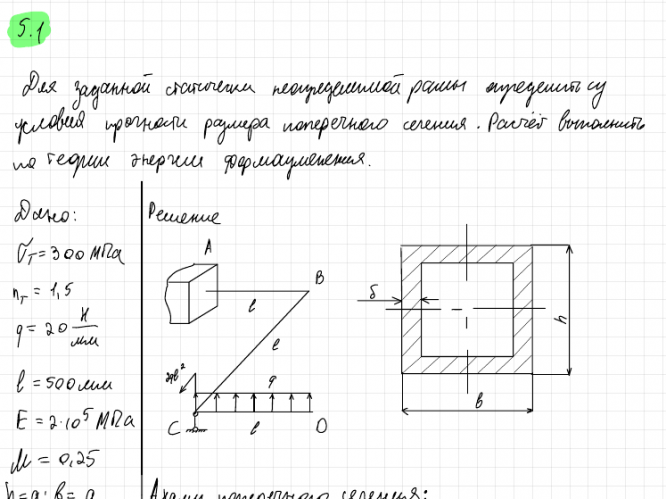 5.1
Для заданной статически неопределимой рамы определить из
условия прочности размера поперечного сечения. Расчёт выполнить
по теории энергии формоизменения.
Дано:
Решение
σт = 300 МПа
nт = 1,5
q = 20 Н/мм
l = 500 мм
E = 2·10⁵ МПа
μ = 0,25
A
B
l
l
q
C
l
D
δ
h
в
поперечного сечения: